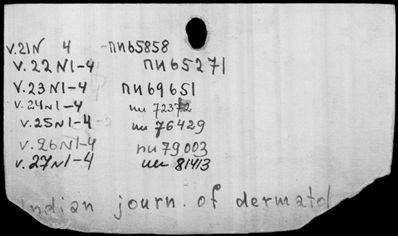 v.21N 4 -пи65858
v.22N1-4 пи65271
v.23N1-4 пи69651
v.24N1-4 пи 72372
v.25N1-4 пи 76429
v.26N1-4 пи79003
v.27N1-4 пи 81413
Indian journ. of dermatol